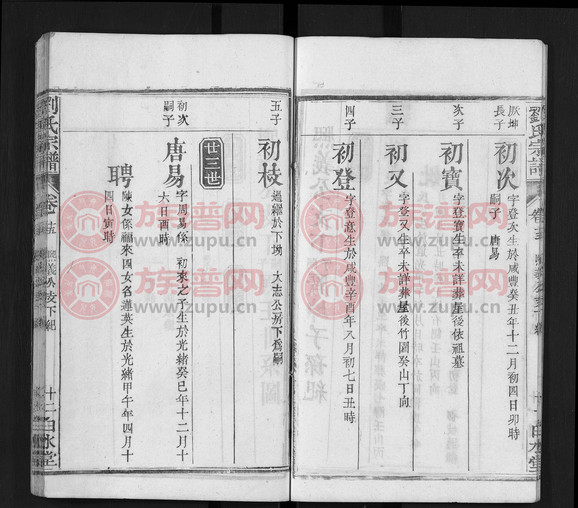 劉氏宗譜
朕坤長子
初次
字登次生於咸豐癸丑年十二月初四日卯時
嗣子 唐易
次子
初寶
字登寶生卒未詳葬屋後依祖墓
三子
初又
字登又生卒未詳葬屋後竹園癸山丁向
四子
初登
字登意生於咸豐辛酉年又月初七日丑時
五子
初枝
過繼於下坳 大志公房下爲嗣
廿三世
初次嗣子
唐易
字周易係 初來之子生於光緒癸巳年十二月十六日酉時
聘
陳女係福來四女名蓮英生於光緒甲午年四月十四日寅時
劉氏宗譜
卷
十二
白水堂
族普网
www.zupu.cn
族普网
www.zupu.cn
族普网
www.zupu.cn
族普网
www.zupu.cn